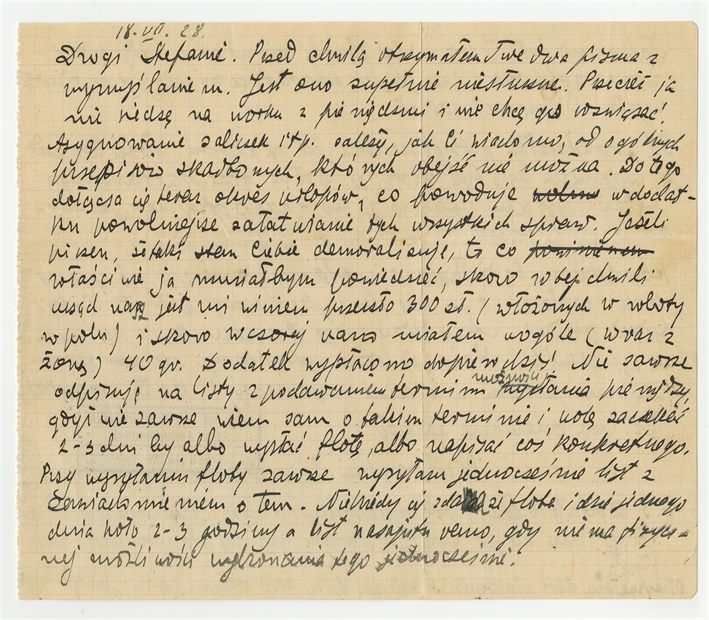 18.VII.28.
Drogi Stefanie. Przed chwilą otrzymałem Twe dwa pisma z
wymyślaniem. Jest ono zupełnie niesłuszne. Przecież ja
nie siedzę na worku z pieniędzmi i nie chcę go rozwiązać.
Asygnowanie zaliczek itp. zależy, jak Ci wiadomo, od ogólnych
przepisów skarbowych, których obejść nie można. Do tego
dołącza się teraz okres urlopów, co powoduje w dodat-
ku powolniejsze załatwianie tych wszystkich spraw. Jeśli
piszesz, że taki stan Ciebie demoralizuje, to co
właściwie ja musiałbym powiedzieć, skoro w tej chwili
urząd nasz jest mi winien przeszło 300 zł. (włożonych w roboty
w polu) i skoro wczoraj rano miałem wogóle (wraz z
żoną) 40 gr. Dodatek wypłacono dopiero dziś! Nie zawsze
odpisuję na listy z podawaniem terminu możności wysłania pieniędzy,
gdyż nie zawsze wiem sam o takim terminie i wolę zaczekać
2-3 dni by albo wysłać flotę, albo napisać coś konkretnego.
Przy wysyłaniu floty zawsze wysyłam jednocześnie list z
zawiadomieniem o tem. Niekiedy się zdarza że flota idzie jednego
dnia koło 2-3 godziny a list nazajutrz rano, gdy niema fizycz-
nej możliwości wykonania tego jednocześnie.